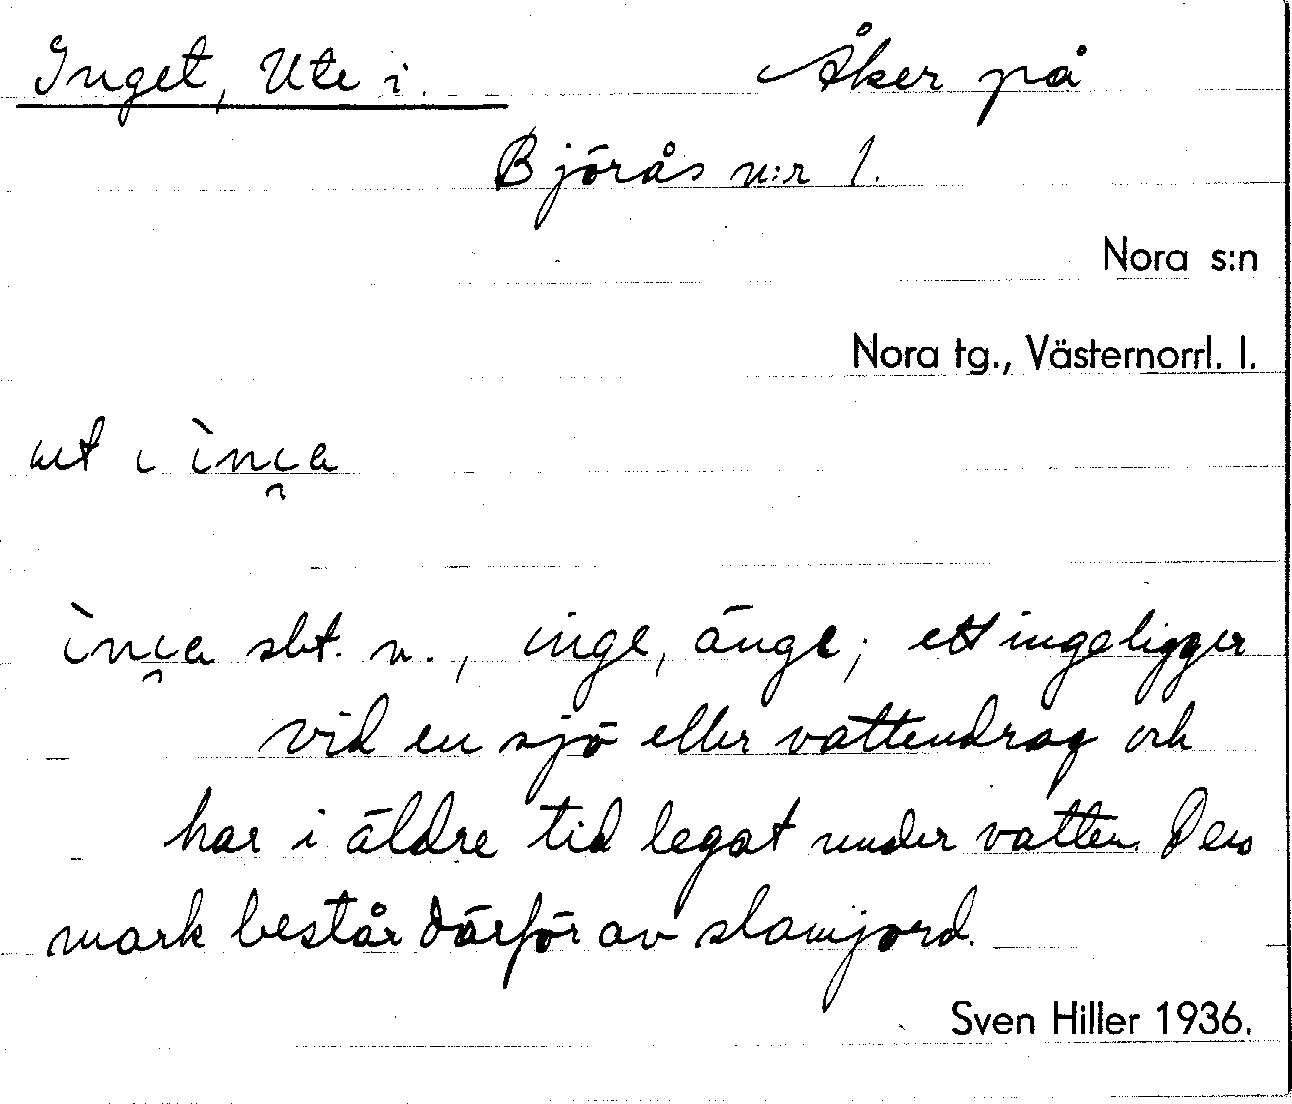 Inget, Ute i. Åker på
Björås n:r 1.
Nora s:n
Nora tg., Västernorrl. l.
ut i
sbt. n., inge, änge; ett inge ligger
vid en sjö eller vattendrag och
har i äldre tid legat under vatten. Dess
mark består därför av slamjord.
Sven Hiller 1936.